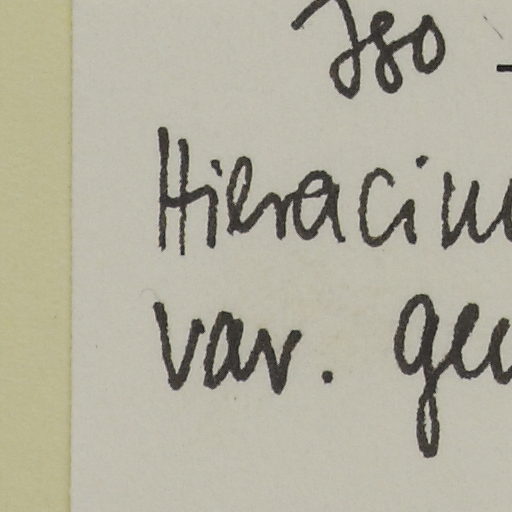 Iso -
Hieraciu
var. gen